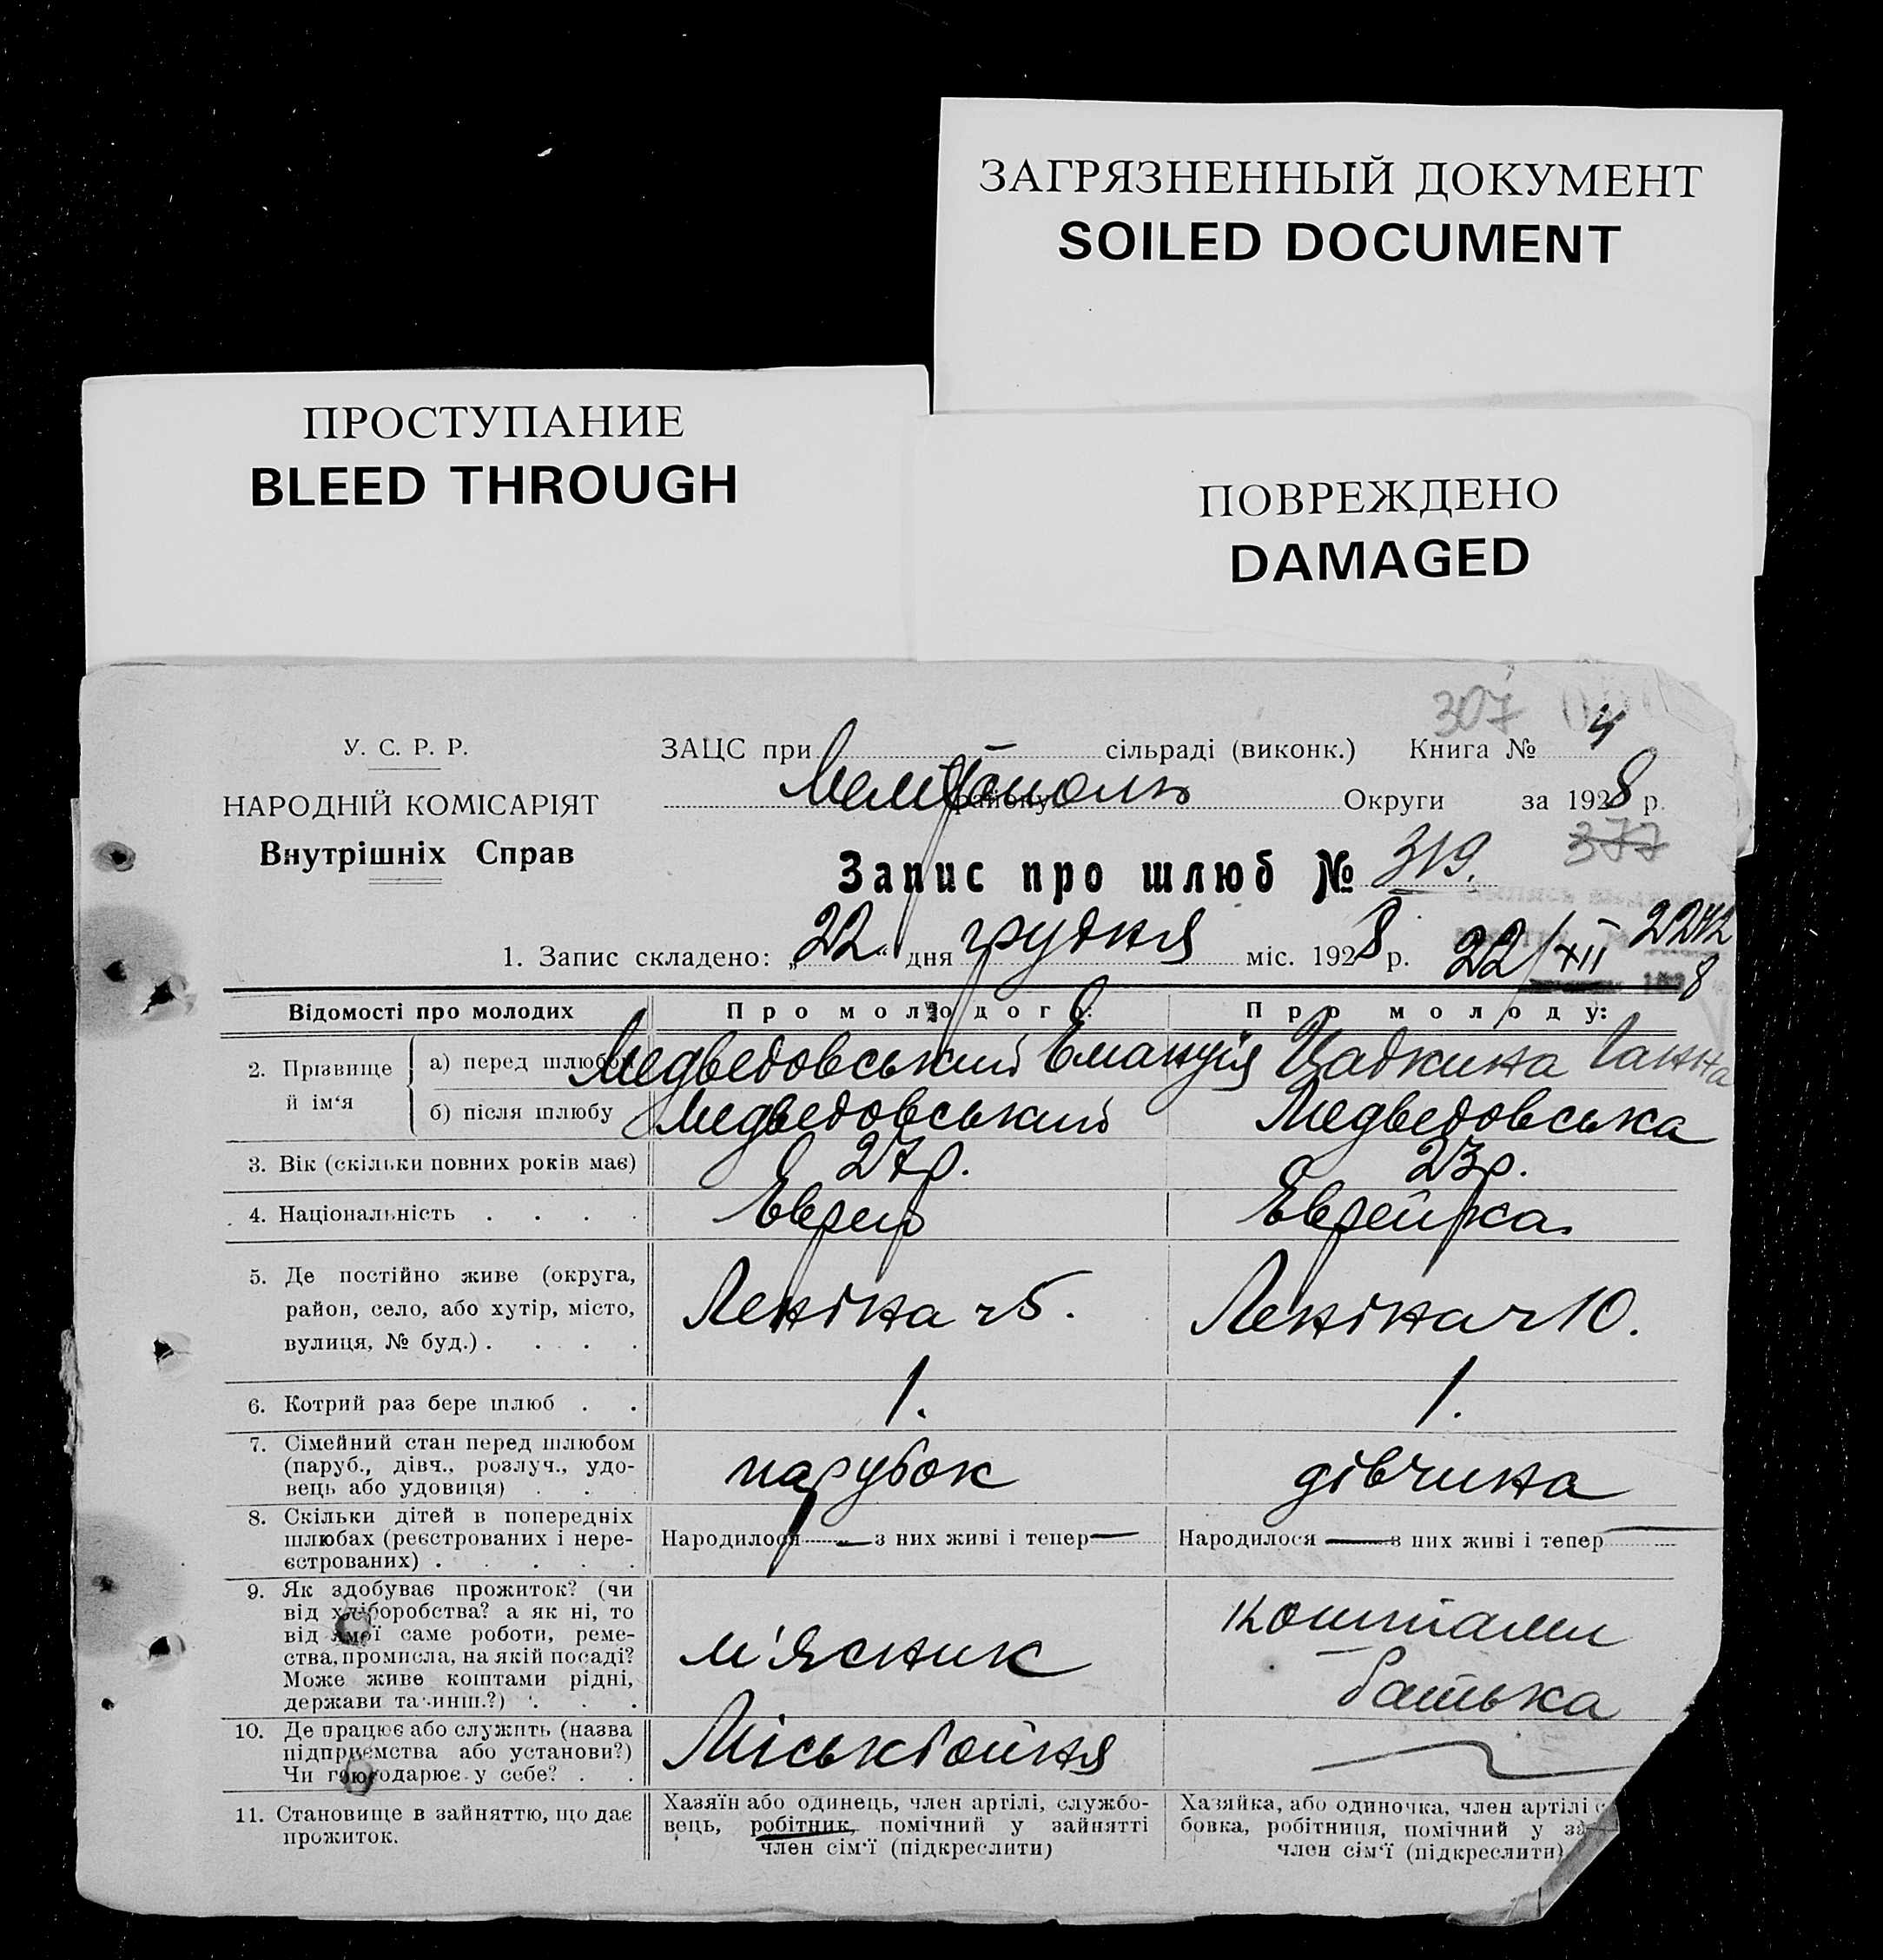 ЗАГРЯЗНЕННЫЙ ДОКУМЕНТ
SOILED DOCUMENT
ПРОСТУПАНИЕ
BLEED THROUGH
ПОВРЕЖДЕНО
DAMAGED
307
У. С. Р. Р.
НАРОДНІЙ КОМІСАРІЯТ
Внутрішніх Справ
ЗАЦС при — сільраді (виконк.) Книга № 4
Мелітополь району Округи за 1928 р.
377
Запис про шлюб № 319.
1. Запис складено: „22" дня грудня міс. 1928 р. 22/XII 8
Відомості про молодих Про молодого: Про молоду:
2. Прізвище й ім'я
а) перед шлюбом Медведовський Емануїл Цадкина Ганна
б) після шлюбу Медведовський Медведовська
3. Вік (скільки повних років має) 27 р. 23 р.
4. Національність . . . . Еврей Еврейка
5. Де постійно живе (округа,
район, село, або хутір, місто,
вулиця, № буд.) . . . .
Леніна ч 5. Леніна ч 10.
6. Котрий раз бере шлюб . . 1. 1.
7. Сімейний стан перед шлюбом
(паруб., дівч., розлуч., удо-
вець або удовиця) . . .
парубок дівчина
8. Скільки дітей в попередніх
шлюбах (реєстрованих і нере-
єстрованих) . . . . .
Народилося — з них живі і тепер — Народилося — з них живі і тепер —
9. Як здобуває прожиток? (чи
від хліборобства? а як ні, то
від якої саме роботи, реме-
ства, промисла, на якій посаді?
Може живе коштами рідні,
держави та инш.?) . . .
м'ясник коштами
батька
10. Де працює або служить (назва
підприємства або установи?)
Чи господарює у себе? . .
Міськбойня
11. Становище в зайняттю, що дає
прожиток.
Хазяїн або одинець, член артілі, службо-
вець, робітник, помічний у зайнятті
член сім'ї (підкреслити)
Хазяйка, або одиночка, член артілі с
бовка, робітниця, помічний у за
член сім'ї (підкреслити)